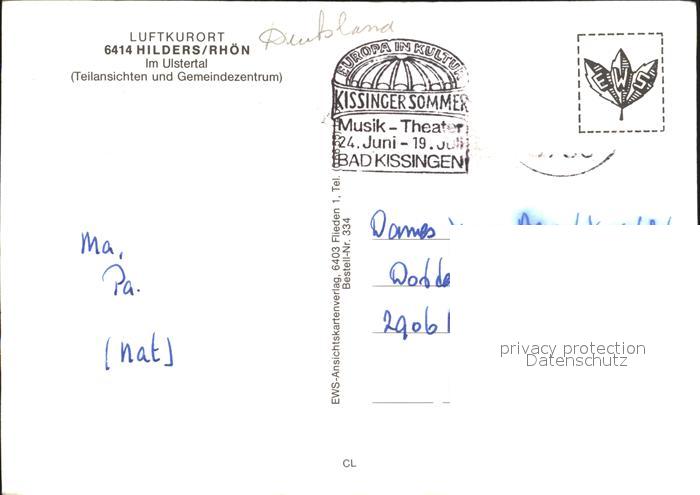 LUFTKURORT
6414 HILDERS/RHÖN
Im Ulstertal
(Teilansichten und Gemeindezentrum)
Deutsland
EUROPA IN KULTUR
KISSINGER SOMMER
Musik - Theater
24. Juni - 19. Juli
BAD KISSINGEN
EWS
Ma,
Pa.
[nat]
EWS-Ansichtskartenverlag, 6403 Flieden 1, Tel.
Bestell-Nr. 334
Dames
2906
privacy protection
Datenschutz
CL